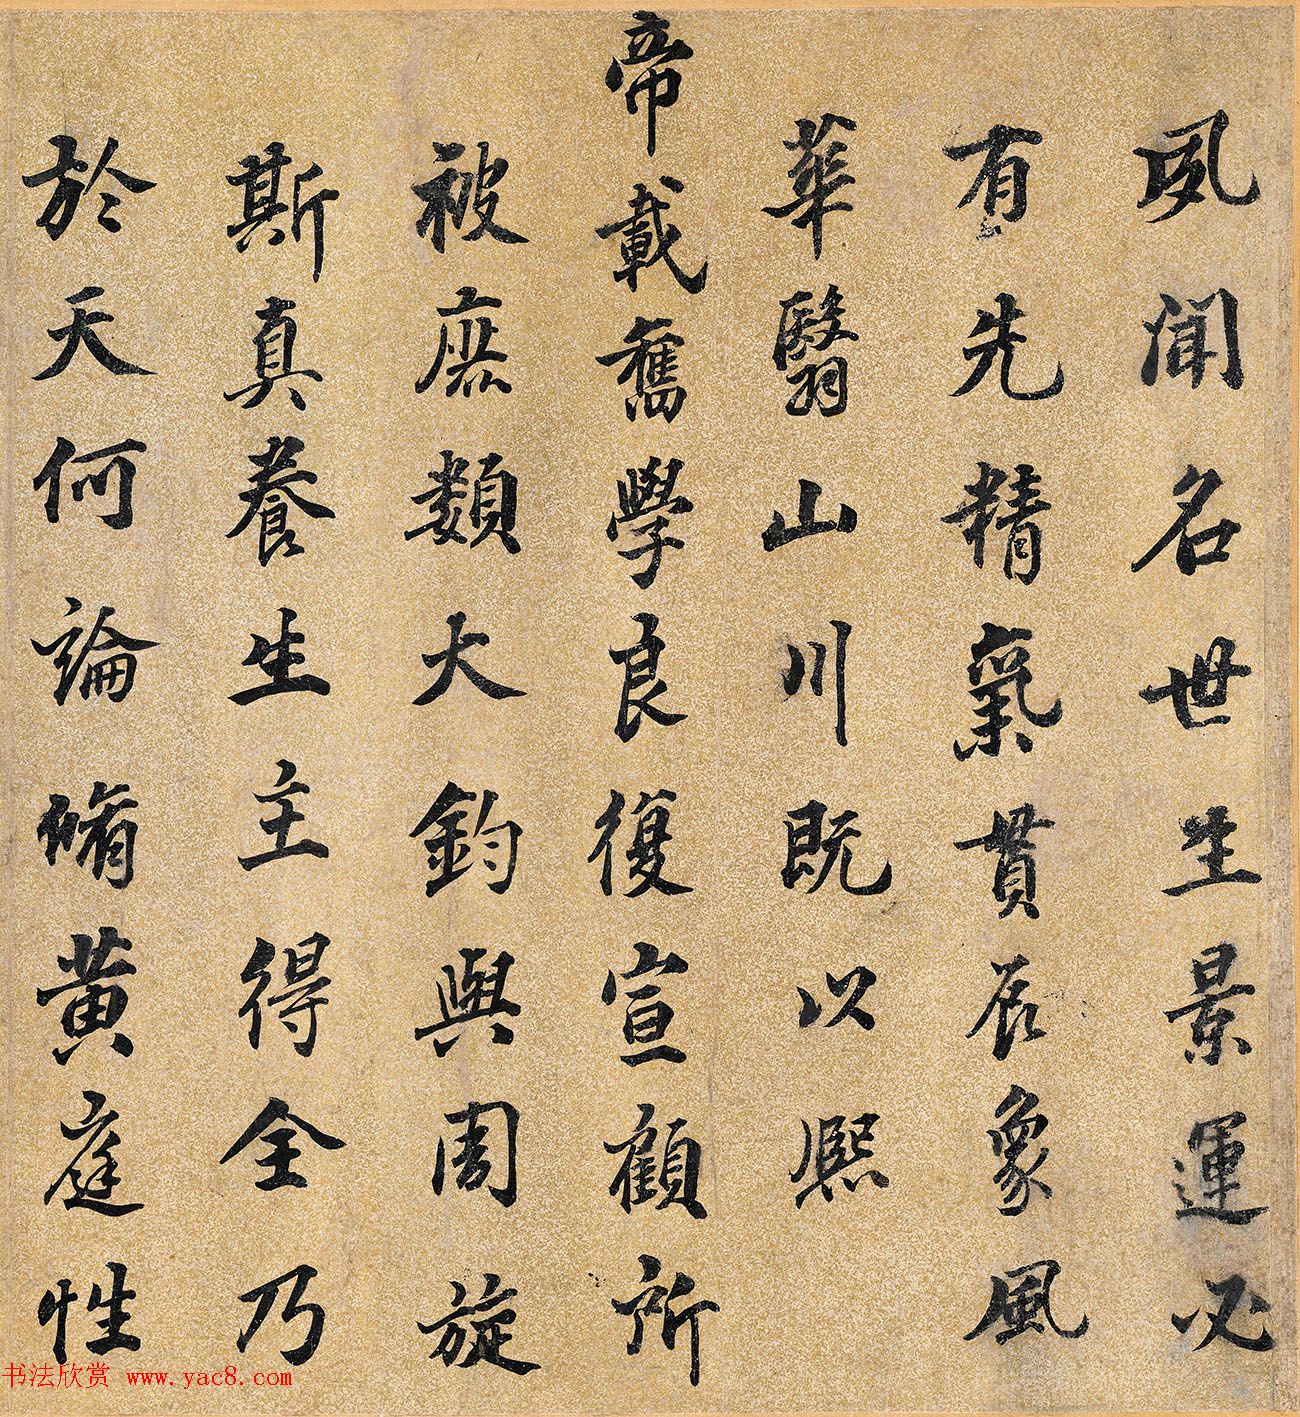 夙聞名世生景運必
有先精氣貫辰象風
華翳山川既以熙
帝載奮學良復宣顧所
被庶類大鈞與周旋
斯真養生主得全乃
於天何論脩黃庭性
书法欣赏 www.yac8.com